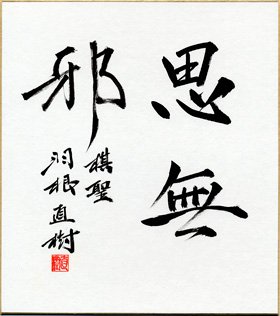 思無
邪
棋聖
羽根直樹